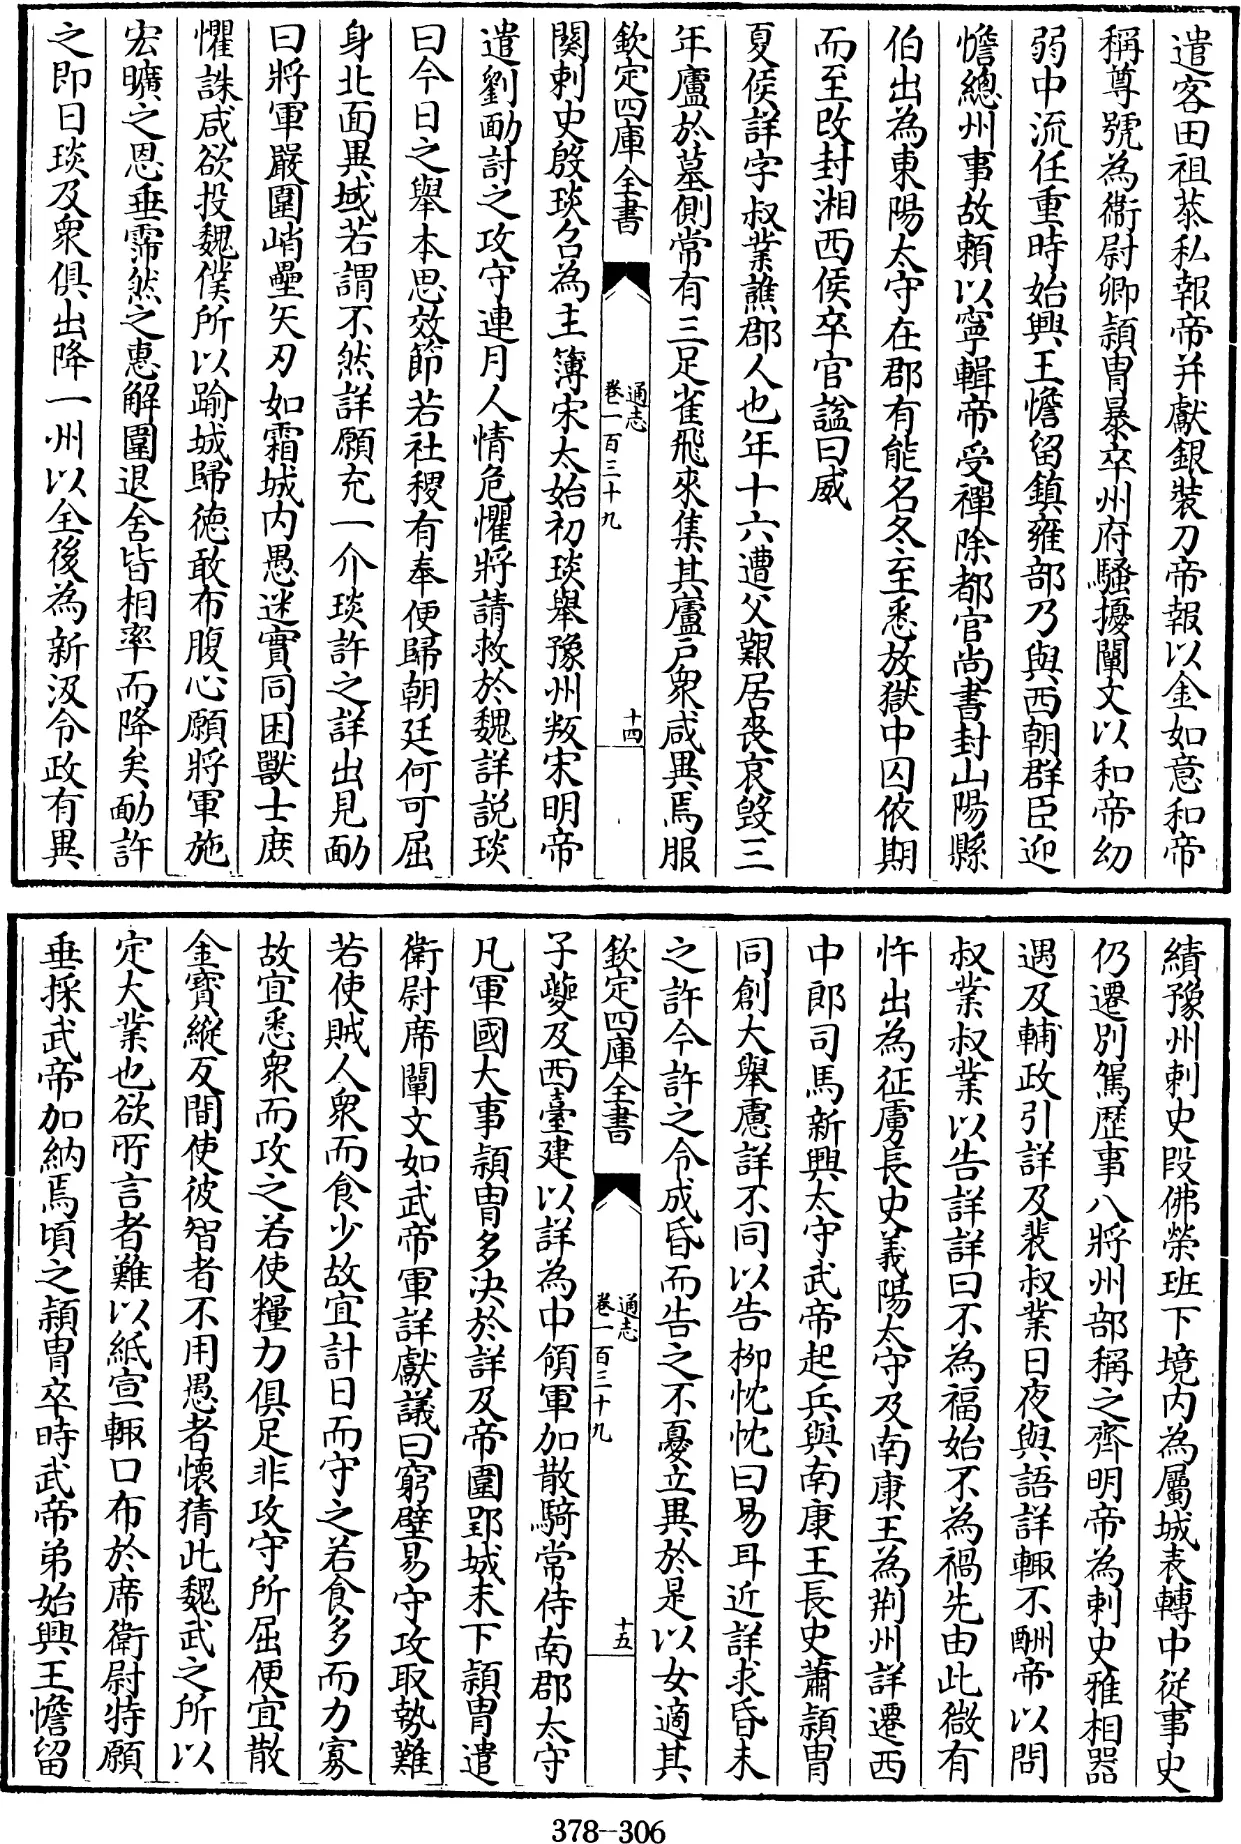 遣客田祖恭私報帝并獻銀装刀帝報以金如意和帝
稱尊號為衞尉卿頴胄暴卒州府騷擾闡文以和帝幼
弱中流任重時始興王憺留鎮雍部乃與西朝群臣迎
憺總州事故頼以寧輯帝受禪除都官尚書封山陽縣
伯出為東陽太守在郡有能名冬至悉放獄中囚依期
而至改封湘西侯卒官諡曰威
夏侯詳字叔業譙郡人也年十六遭父艱居喪哀毀三
年廬於墓側常有三足雀飛來集其廬戸衆咸異焉服
欽定四庫全書
通志
卷一百三十九
十四
闋刺史殷琰召為主簿宋太始初琰舉豫州叛宋明帝
遣劉勔討之攻守連月人情危懼將請救於魏詳説琰
曰今日之舉本思效節若社稷有奉便歸朝廷何可屈
身北面異域若謂不然詳願充一介琰許之詳出見勔
曰將軍嚴圍峭壘矢刃如霜城内愚迷實同困獸士庶
懼誅咸欲投魏僕所以踰城歸徳敢布腹心願將軍施
宏曠之恩垂霈然之恵解圍退舍皆相率而降矣勔許
之即日琰及衆俱出降一州以全後為新汲令政有異
績豫州刺史段佛榮班下境内為屬城表轉中從事史
仍遷别駕歴事八將州部稱之齊明帝為刺史雅相器
遇及輔政引詳及裴叔業日夜與語詳輙不酬帝以問
叔業叔業以告詳詳曰不為福始不為禍先由此微有
忤出為征虜長史義陽太守及南康王為荆州詳遷西
中郎司馬新興太守武帝起兵與南康王長史蕭頴胄
同創大舉慮詳不同以告柳忱忱曰易耳近詳求昏未
之許今許之令成昏而告之不憂立異於是以女適其
欽定四庫全書
通志
卷一百三十九
十五
子夔及西臺建以詳為中領軍加散騎常侍南郡太守
凡軍國大事頴胄多决於詳及帝圍郢城未下頴胄遣
衛尉席闡文如武帝軍詳獻議曰窮壁易守攻取勢難
若使賊人衆而食少故宜計日而守之若食多而力寡
故宜悉衆而攻之若使糧力俱足非攻守所屈便宜散
金寳縱反間使彼智者不用愚者懐猜此魏武之所以
定大業也欲所言者難以紙宣輙口布於席衛尉特願
垂採武帝加納焉頃之頴胄卒時武帝弟始興王憺留
378--306